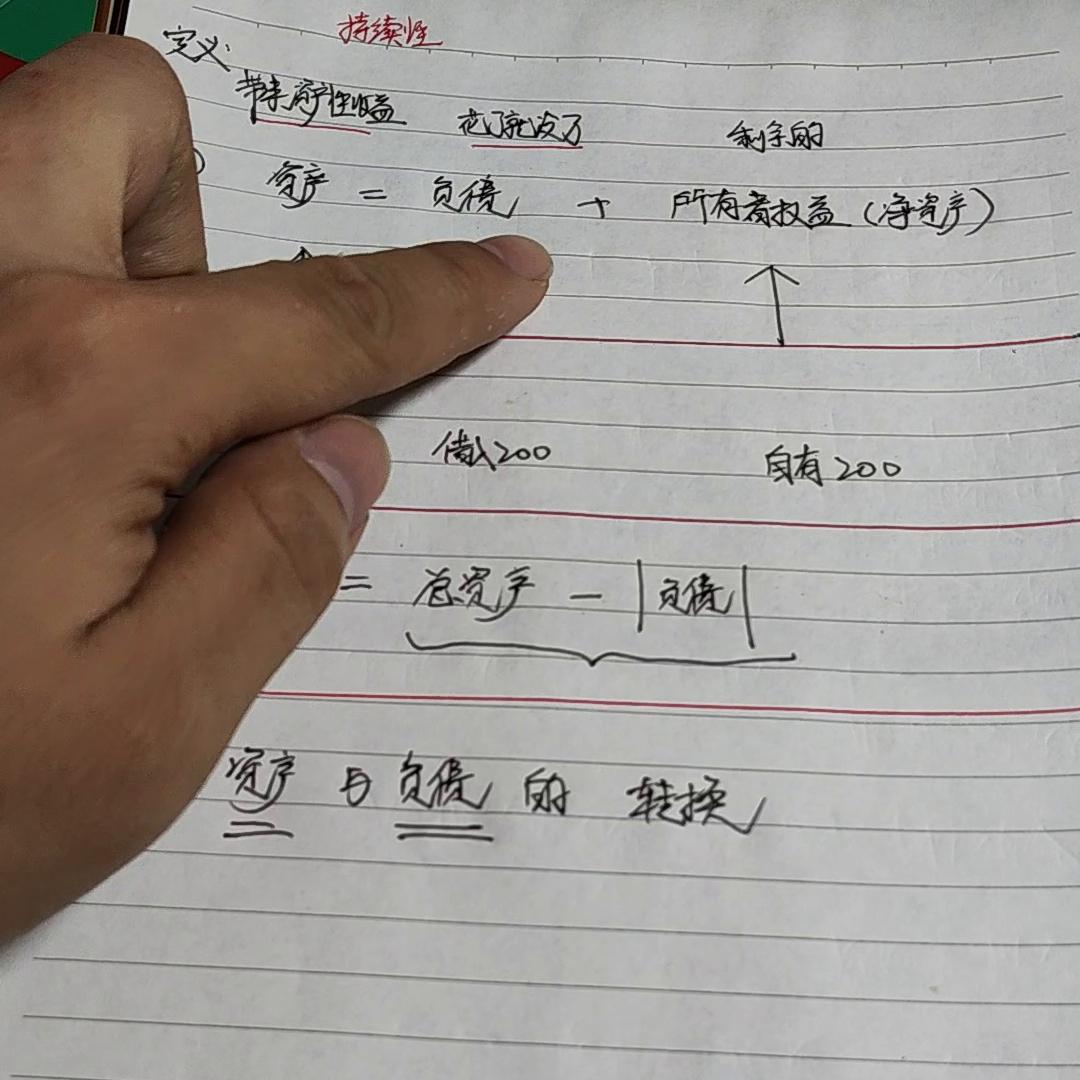 持续性
定义
带来资产性收益 花了就没了 剩余的
资产 = 负债 + 所有者权益（净资产）
借入200 自有200
= 总资产 - |负债|
资产与负债的转换